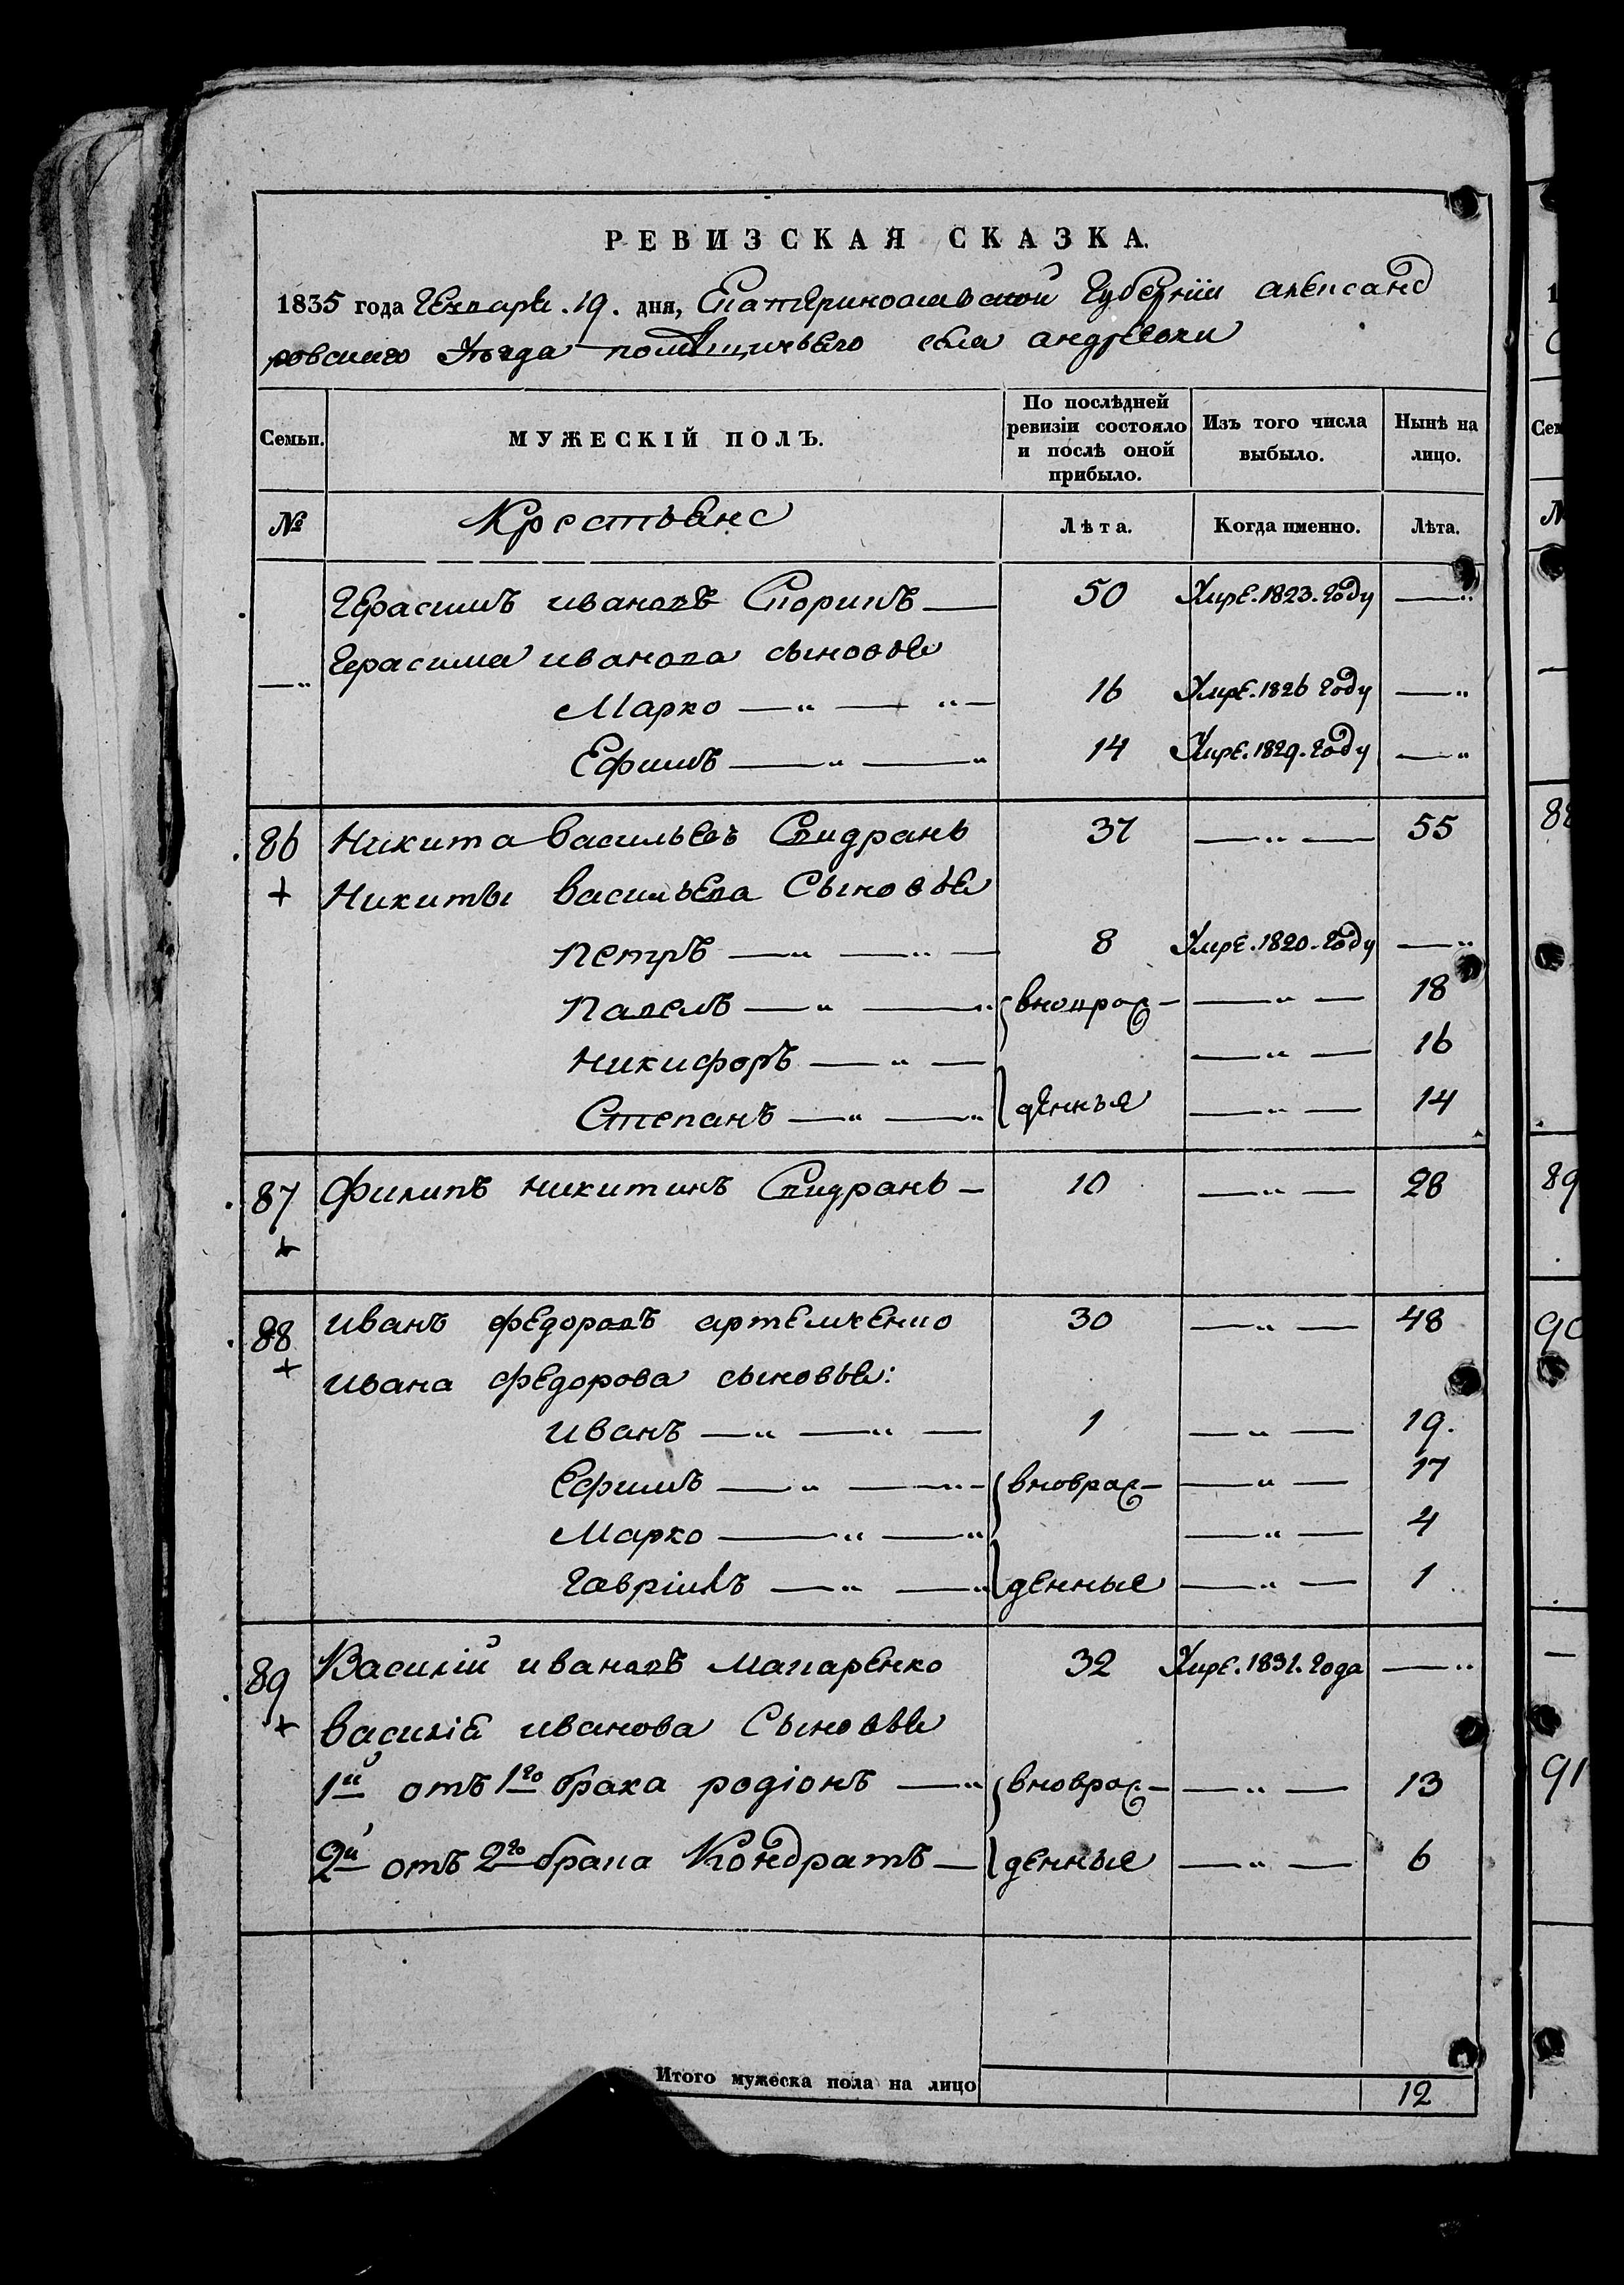 РЕВИЗСКАЯ СКАЗКА.
1835 года Генваря .19. дня, Екатеринославской Губернiи александ
ровскаго Уѣзда помѣщичьяго села андреевки
Семьи. МУЖЕСКІЙ ПОЛЪ. По послѣдней ревизіи состояло и послѣ оной прибыло. Изъ того числа выбыло. Нынѣ на лицо.
№ Крестьяне Лѣта. Когда именно. Лѣта.
Герасимъ ивановъ 50 Умре.1823.Году —"
Герасима иванова сыновья
—" Марко —"— "— 16 Умре.1826 Году —"
Ефимъ —"—" 14 Умре.1829.Году —"
86 Никита Васильевъ Свидрань 37 —"— 55
+ Никиты Васильева Сыновья
Петръ —" —"— 8 Умре.1820.Году —"
Павелъ —" —" вноврож- —"— 18
Никифоръ —"— —"— 16
Степанъ —" —" денныя —"— 14
87 Филипъ никитинъ Свидрань — 10 —"— 28
+
88 иванъ федоровъ артемченко 30 —"— 48
+ ивана федорова сыновья:
иванъ —" —"— 1 —"— 19.
Ефимъ —" —"— вноврож- —"— 17
Марко —" —" —"— 4
Гаврiилъ —" —" денные —"— 1
89 Василiй ивановъ Макаренко 32 Умре.1831.Года —"
+ Василiя иванова Сыновья
1й отъ 1го брака родiонъ —" вноврож- —"— 13
2й отъ 2го брака Кондратъ — денные —"— 6
Итого мужеска пола на лицо 12
1
С
Сем
№
—
88
89
90
—
91